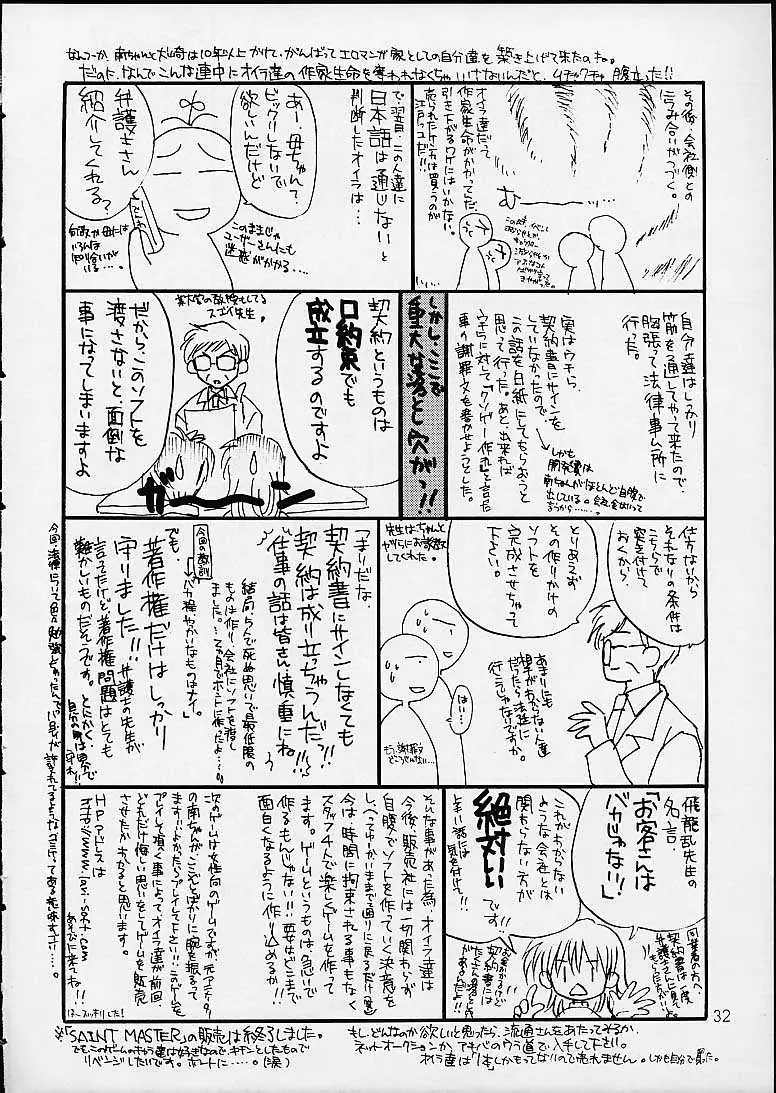 なんつーか、南ちゃんと大崎は10年以上かけて、がんばってエロマンガ家としての自分達を築き上げて来たのね。
だのに、なんでこんな連中にオイラ達の作家生命を奪われなくちゃいけないんだと、ムチャクチャ腹立った!!
その後、会社側との
にらみ合いがつづく。
む
オイラ達だって
作家生命がかかってんだ、
引き下がるワケにはいかない。
売られたケンカは買うのが
江戸っコだ!!
で、翌日、この人達に
日本語は通じないと
判断したオイラは…
あー、母ちゃん?
ビックリしないで
欲しいんだけど
弁護士さん
紹介してくれる?
このままじゃ
ユーザーさんにも
迷惑がかかる…
自分達はしっかり
筋を通してやって来たので、
胸張って法律事ム所に
行った。
実はウチら、
契約書にサインを
していなかったので、
この話を白紙にしてもらおうと
思って行った。あと、出来れば
ウチらに対して「クソゲー作れ」と言った
事の謝罪文を書かせようとした。
しかも
開発費は
南ちゃんがほとんど自腹で
出している。
しかし、ここで
重大な落とし穴がっ!!
契約というものは
口約束でも
成立するのですよ
だから、このソフトを
渡さないと、面倒な
事になってしまいますよ
ガーーン
仕方ないから
それなりの条件は
こちらで
突き付けて
おくから、
とりあえず
その作りかけの
ソフトを
完成させちゃって
下さい。
先生はちゃんと
やつらにお説教
してくれた。
あまりにも
話がわからない人達
だったら法廷に
行こうじゃないですか。
はい…
もう、謝罪文
どころじゃない…
「まりだな、
契約書にサインしなくても
契約は成り立っちゃうんだっ!!
仕事の話は皆さん慎重にね。」
結局、死んで死ぬ思いで最低限の
ものは作り、会社にソフトを渡し
ました。
今回の教訓
「バカ程やっかいなものはナイ。」
でも、
著作権だけはしっかり
守りました!!
弁護士の先生が
言ってたけど、著作権問題はとても
難かしいものだそうです。とにかく、
飛龍乱先生の
名言。
「お客さんは
バカじゃない!」
これがわからない
ような会社とは
関わらない方が
絶対いい
です!!
うまい話には
気を付けて!!
同業者の方へ、
契約書は一度
弁護士さんに見て
もらった方がいい
そんな事があった為、オイラ達は
今後、販売社には一切関わらず
自腹でソフトを作っていく決意を
し、(つってゆーかいままで通りに戻るだけ)
今は、時間に拘束される事もなく
スタッフ4人で楽しくゲームを作って
ます。ゲームというものは、急いで
作るもんじゃない!!要は、どこまで
面白くなるように作り込めるか!!
次のゲームは女性向のゲームですが、元アニメーター
の南ちゃんが、ここぞとばかりに腕を振るって
ます!!よかったらプレイして下さい!!このゲームを
プレイして頂く事によって、オイラ達が前回、
どれだけ悔しい思いをしてゲームを販売
させたか、わかると思います。
HPアドレスは
あそびに来てね!!
はースッキリした!
32
※「SAINT MASTER」の販売は終了しました。
でもこのゲームのキャラ達は好きなので、キチンとしたもので
リベンジしたいです。ホントに…。(涙)
もし、どんなのか欲しいと思ったら、流通さんをあたってみるか、
ネットオークションか、アキバのウラ道で入手して下さい。
オイラ達は1本しかもってないので売れません。しかも自分で買った。